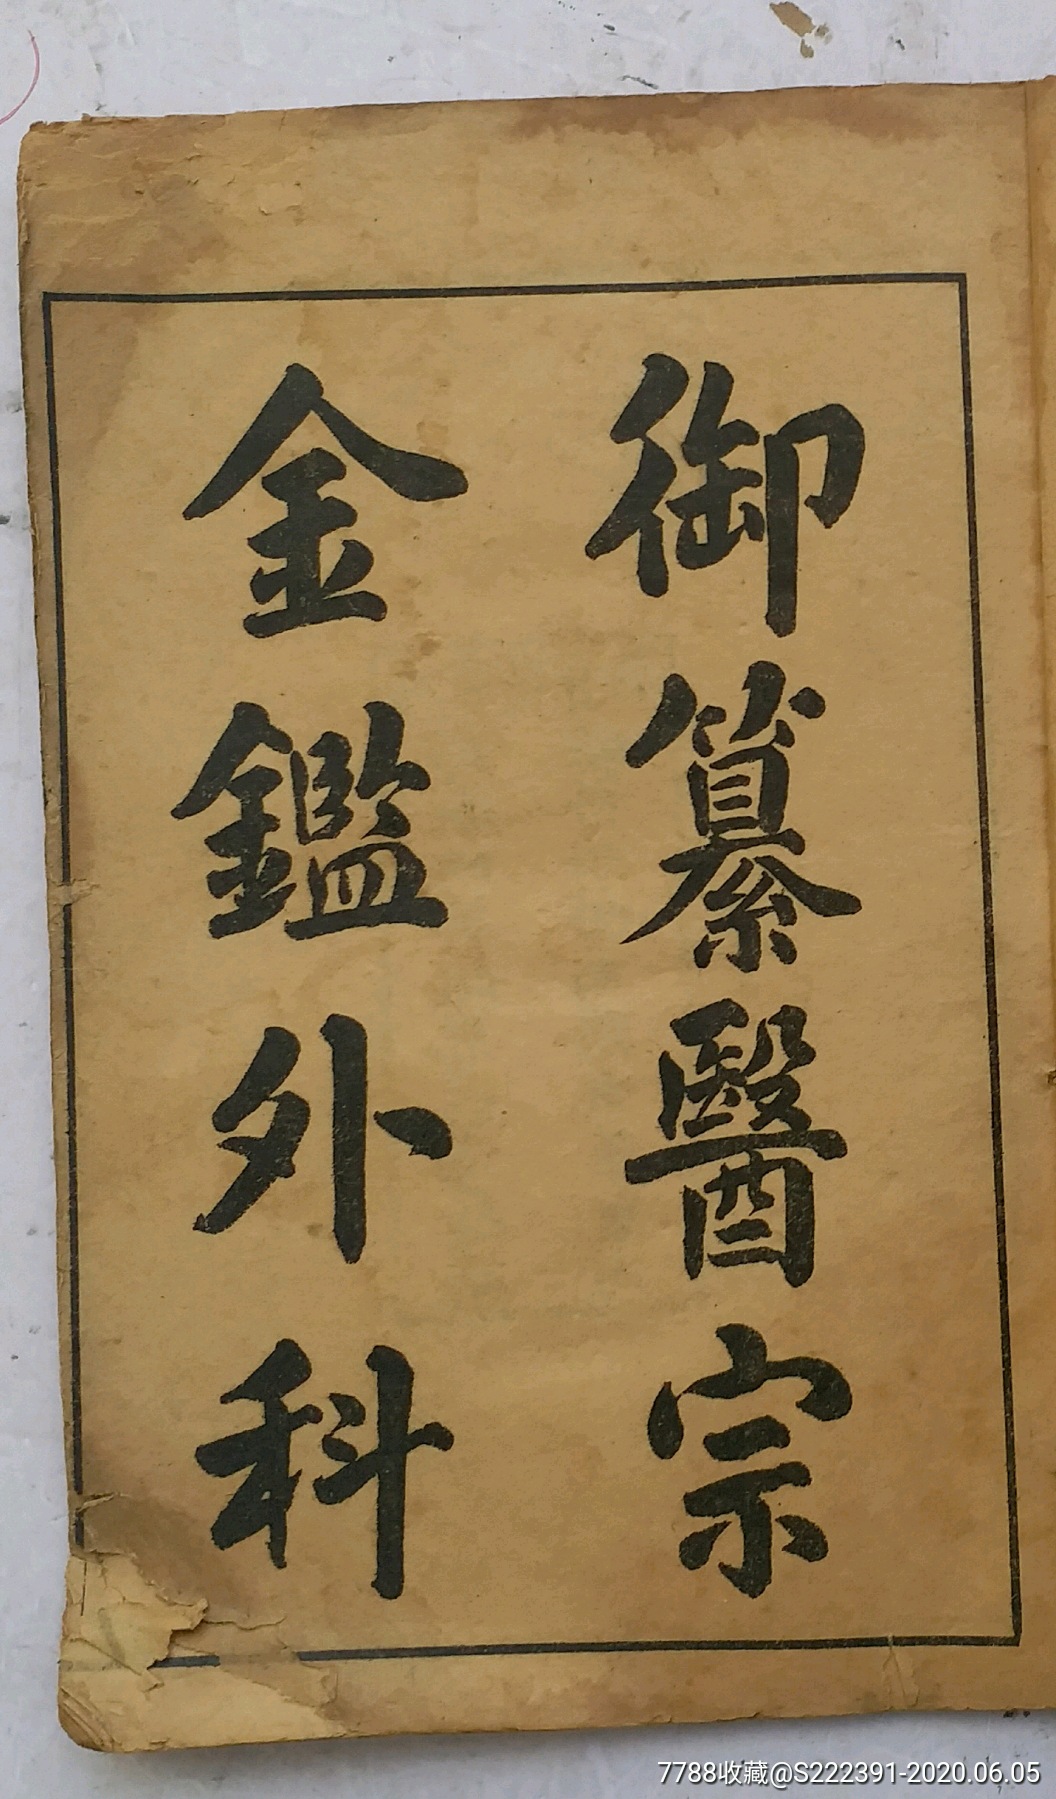 御纂醫宗
金鑑外科
7788收藏@S222391-2020.06.05